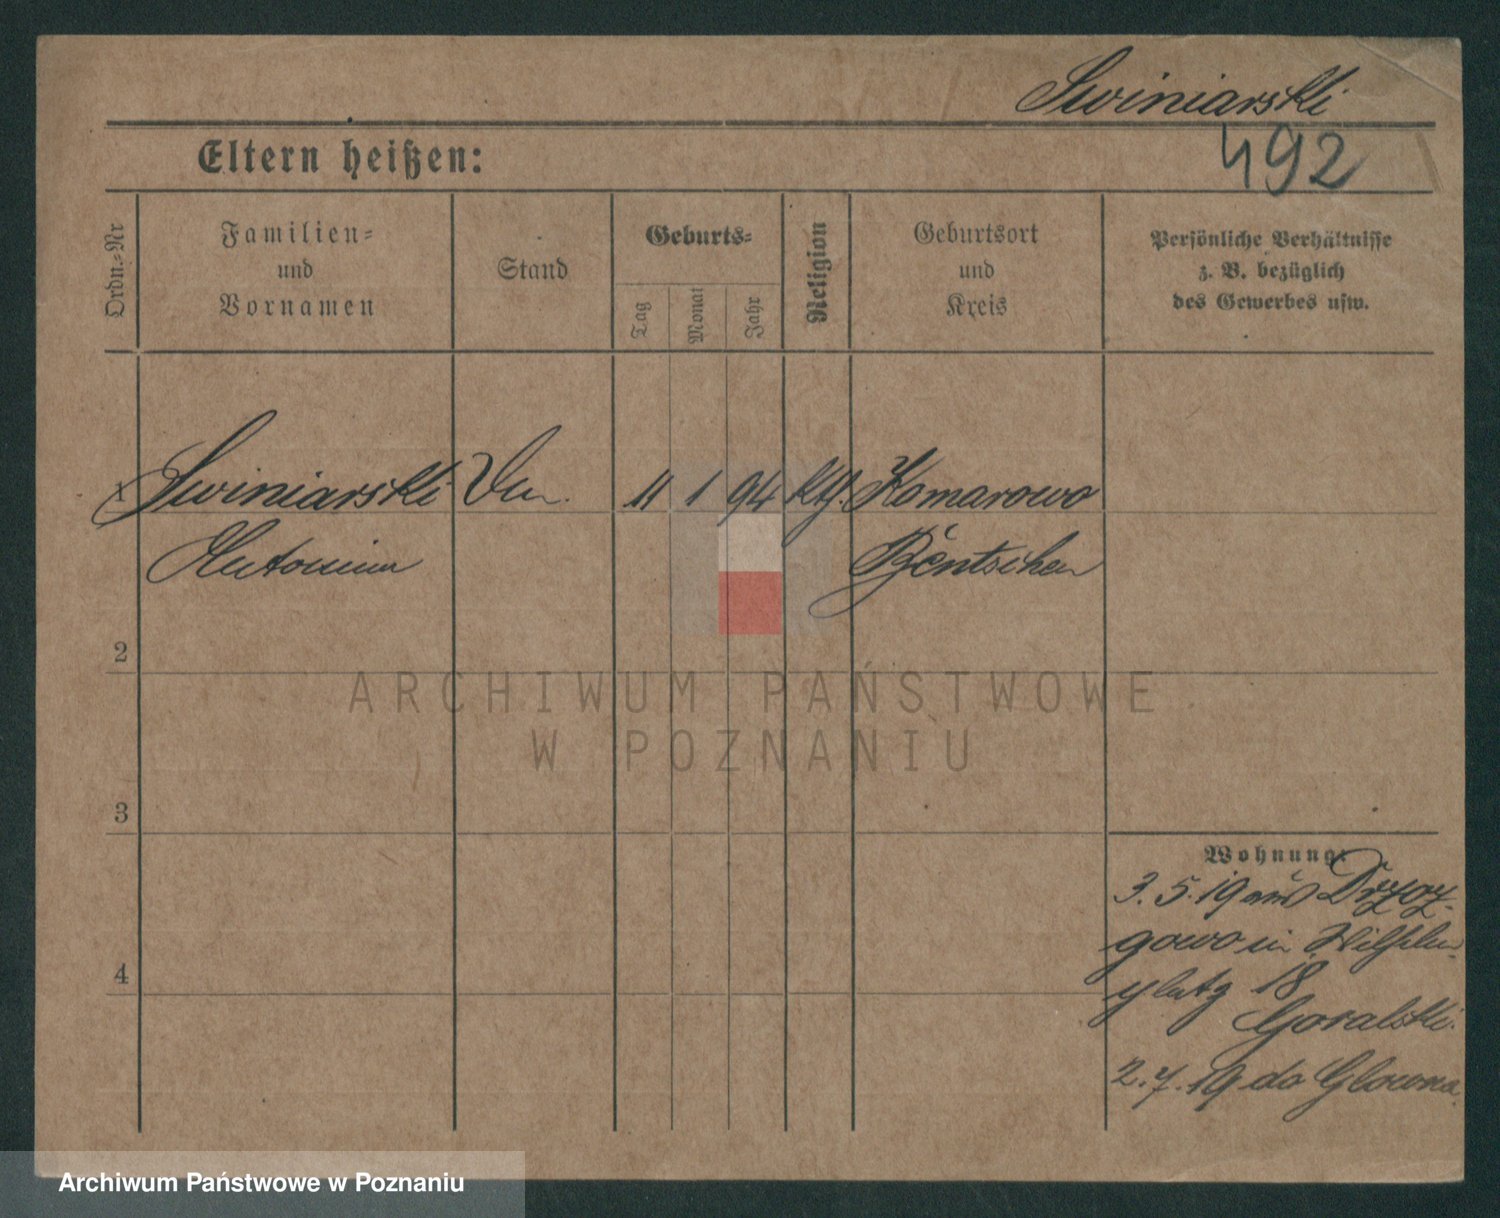 Swiniarski
Eltern heißen:
492
Ordn.-Nr
Familien-
und
Vornamen
Stand
Geburts-
Tag
Monat
Jahr
Religion
Geburtsort
und
Kreis
Persönliche Verhältnisse
z. B. bezüglich
des Gewerbes usw.
1 Swiniarski 11 1 94 Komarowo
Bentschen
2
3
4
ARCHIWUM PAŃSTWOWE
W POZNANIU
Wohnung:
3.5.19 aus
gowo in
platz 18
Goralski.
2.7.19 do Glowna.
Archiwum Państwowe w Poznaniu